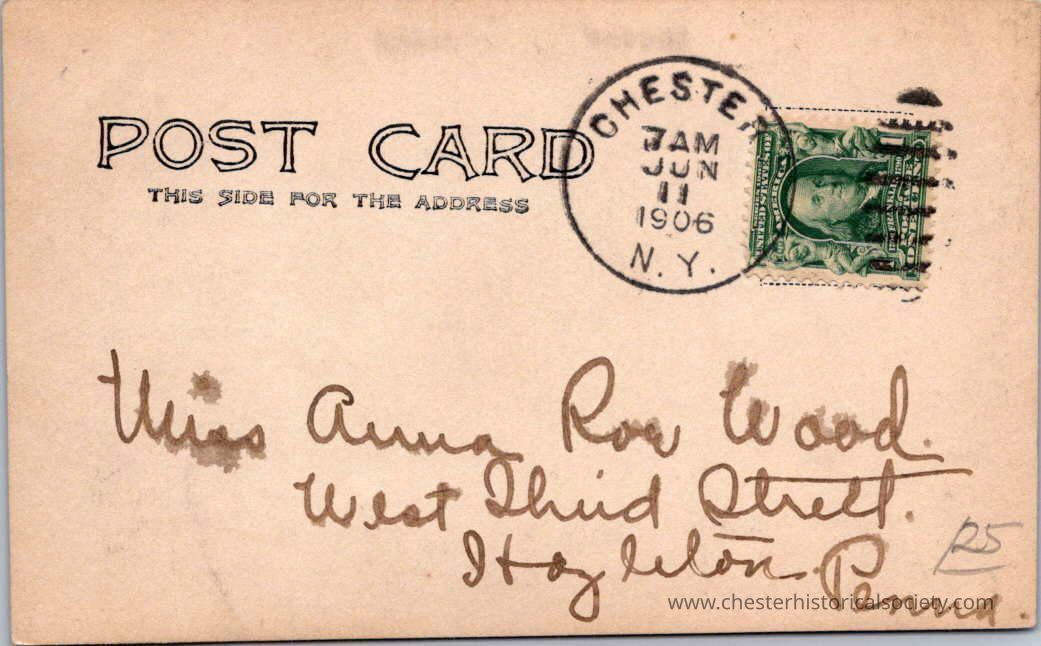 POST CARD
THIS SIDE FOR THE ADDRESS
CHESTER
7 AM
JUN
11
1906
N. Y.
Miss Anna Roe Wood.
West Third Street.
Hazleton. Penna.
www.chesterhistoricalsociety.com